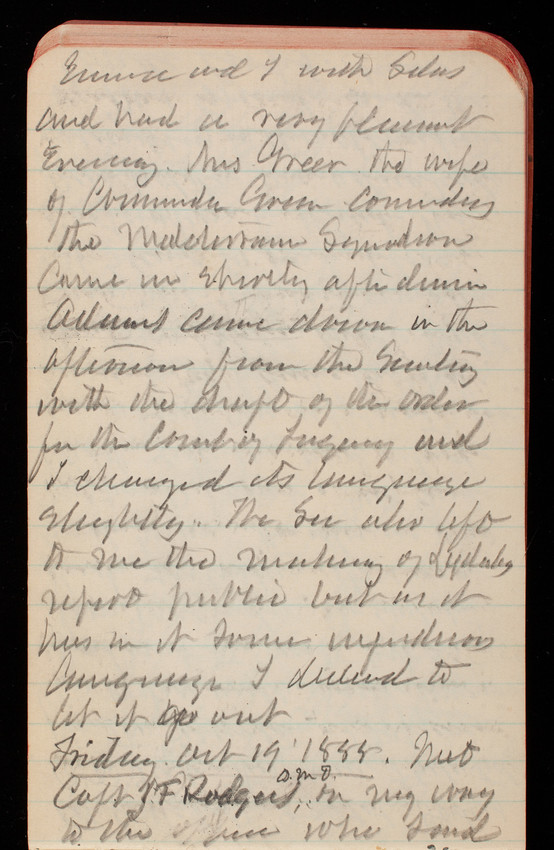 Emma and I with Silas
and had a very pleasant
Evening. Mrs Greer the wife
of Commander Green
the Squadron
Came in shortly after dinner
Adams came down in the
afternoon from the
with the draft of the order
for the Court of Inquiry and
I changed its language
slightly. The Sec also left
to me the making of
report public but as it
has in it some injudicious
language I to
let it go out
Friday Oct 19 1888. Met
Capt J F Rodgers, on my way
to the office who said